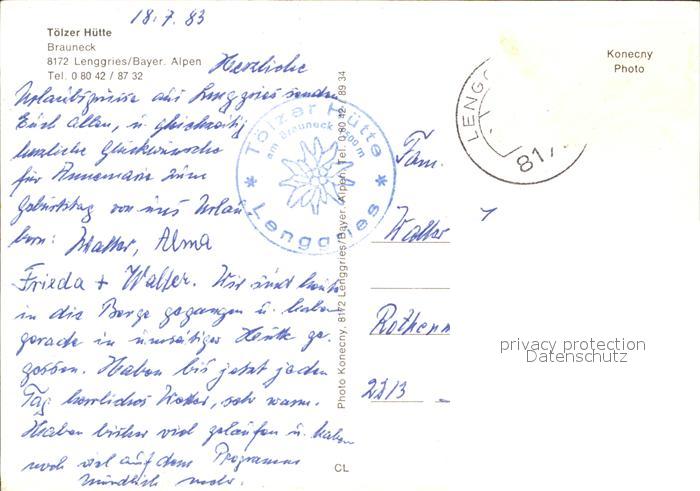 18.7.83
Tölzer Hütte
Brauneck
8172 Lenggries/Bayer. Alpen
Tel. 0 80 42 / 87 32
Herzliche
Urlaubsgrüsse aus Lenggries senden
Euch allen, u. gleichzeitig
herzliche Glückwünsche
für Annemarie zum
Geburtstag von uns Urlau
bern: Walter, Alma
Frieda + Walter. Wir sind heute
in die Berge gegangen u. haben
gerade in umseitiger Hütte ge-
gessen. Haben bis jetzt jeden
Tag herrliches Wetter, sehr warm.
Haben bisher viel gelaufen u. haben
noch viel auf dem Programm
mündlich mehr.
Tölzer Hütte
am Brauneck
Lenggries
Photo Konecny, 8172 Lenggries/Bayer. Alpen, Tel. 0 80 42 / 89 34
CL
Konecny
Photo
LENGG
817
Fam.
Walter
Rothenn
2213
privacy protection
Datenschutz